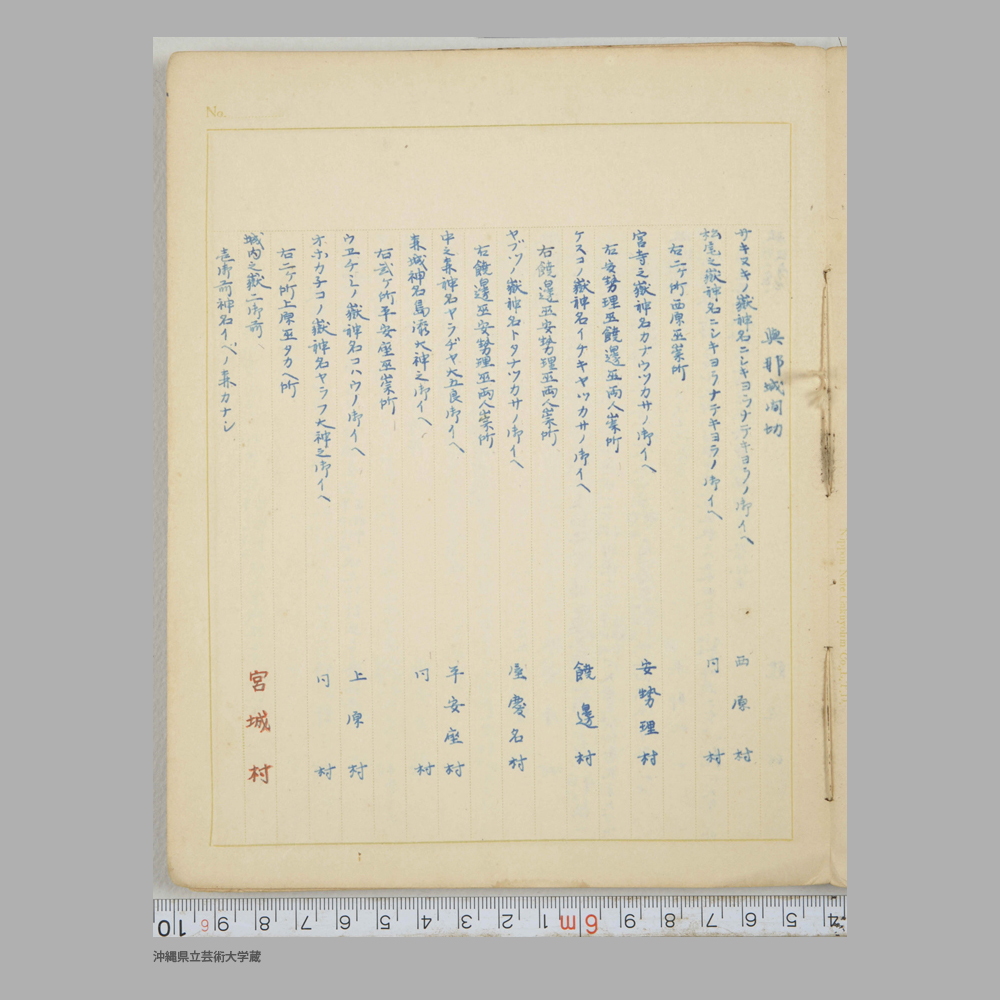 No.
與那城間切
サキヌキノ嶽神名ニシキヨラナデキヨラノ御イベ 西原村
松尾之嶽神名ニシキヨラナデキヨラノ御イベ 同村
右二ヶ所西原巫崇所
宮寺之嶽神名カナウツカサノ御イベ 安勢理村
右安勢理巫饒邊巫両人崇所
ケスコノ嶽神名イチキヤツカサノ御イベ 饒邊村
右饒邊巫安勢理巫両人崇所
ヤブツノ嶽神名トタナツカサノ御イベ 屋慶名村
右饒邊巫安勢理巫両人崇所
中之森神名ヤラヂヤ大五良御イベ 平安座村
森城神名島瀬大神之御イベ 同村
右弐ヶ所平安座巫崇所
ウエケミノ嶽神名コハウノ御イベ 上原村
オホカチコノ嶽神名ヤラフ大神之御イベ 同村
右二ヶ所上原巫タカベ所
城内之嶽二御前 宮城村
壱御前神名イベノ森カナシ
10 9 8 7 6 5 4 3 2 1 6m 9 8 7 6 5 4
沖縄県立芸術大学蔵